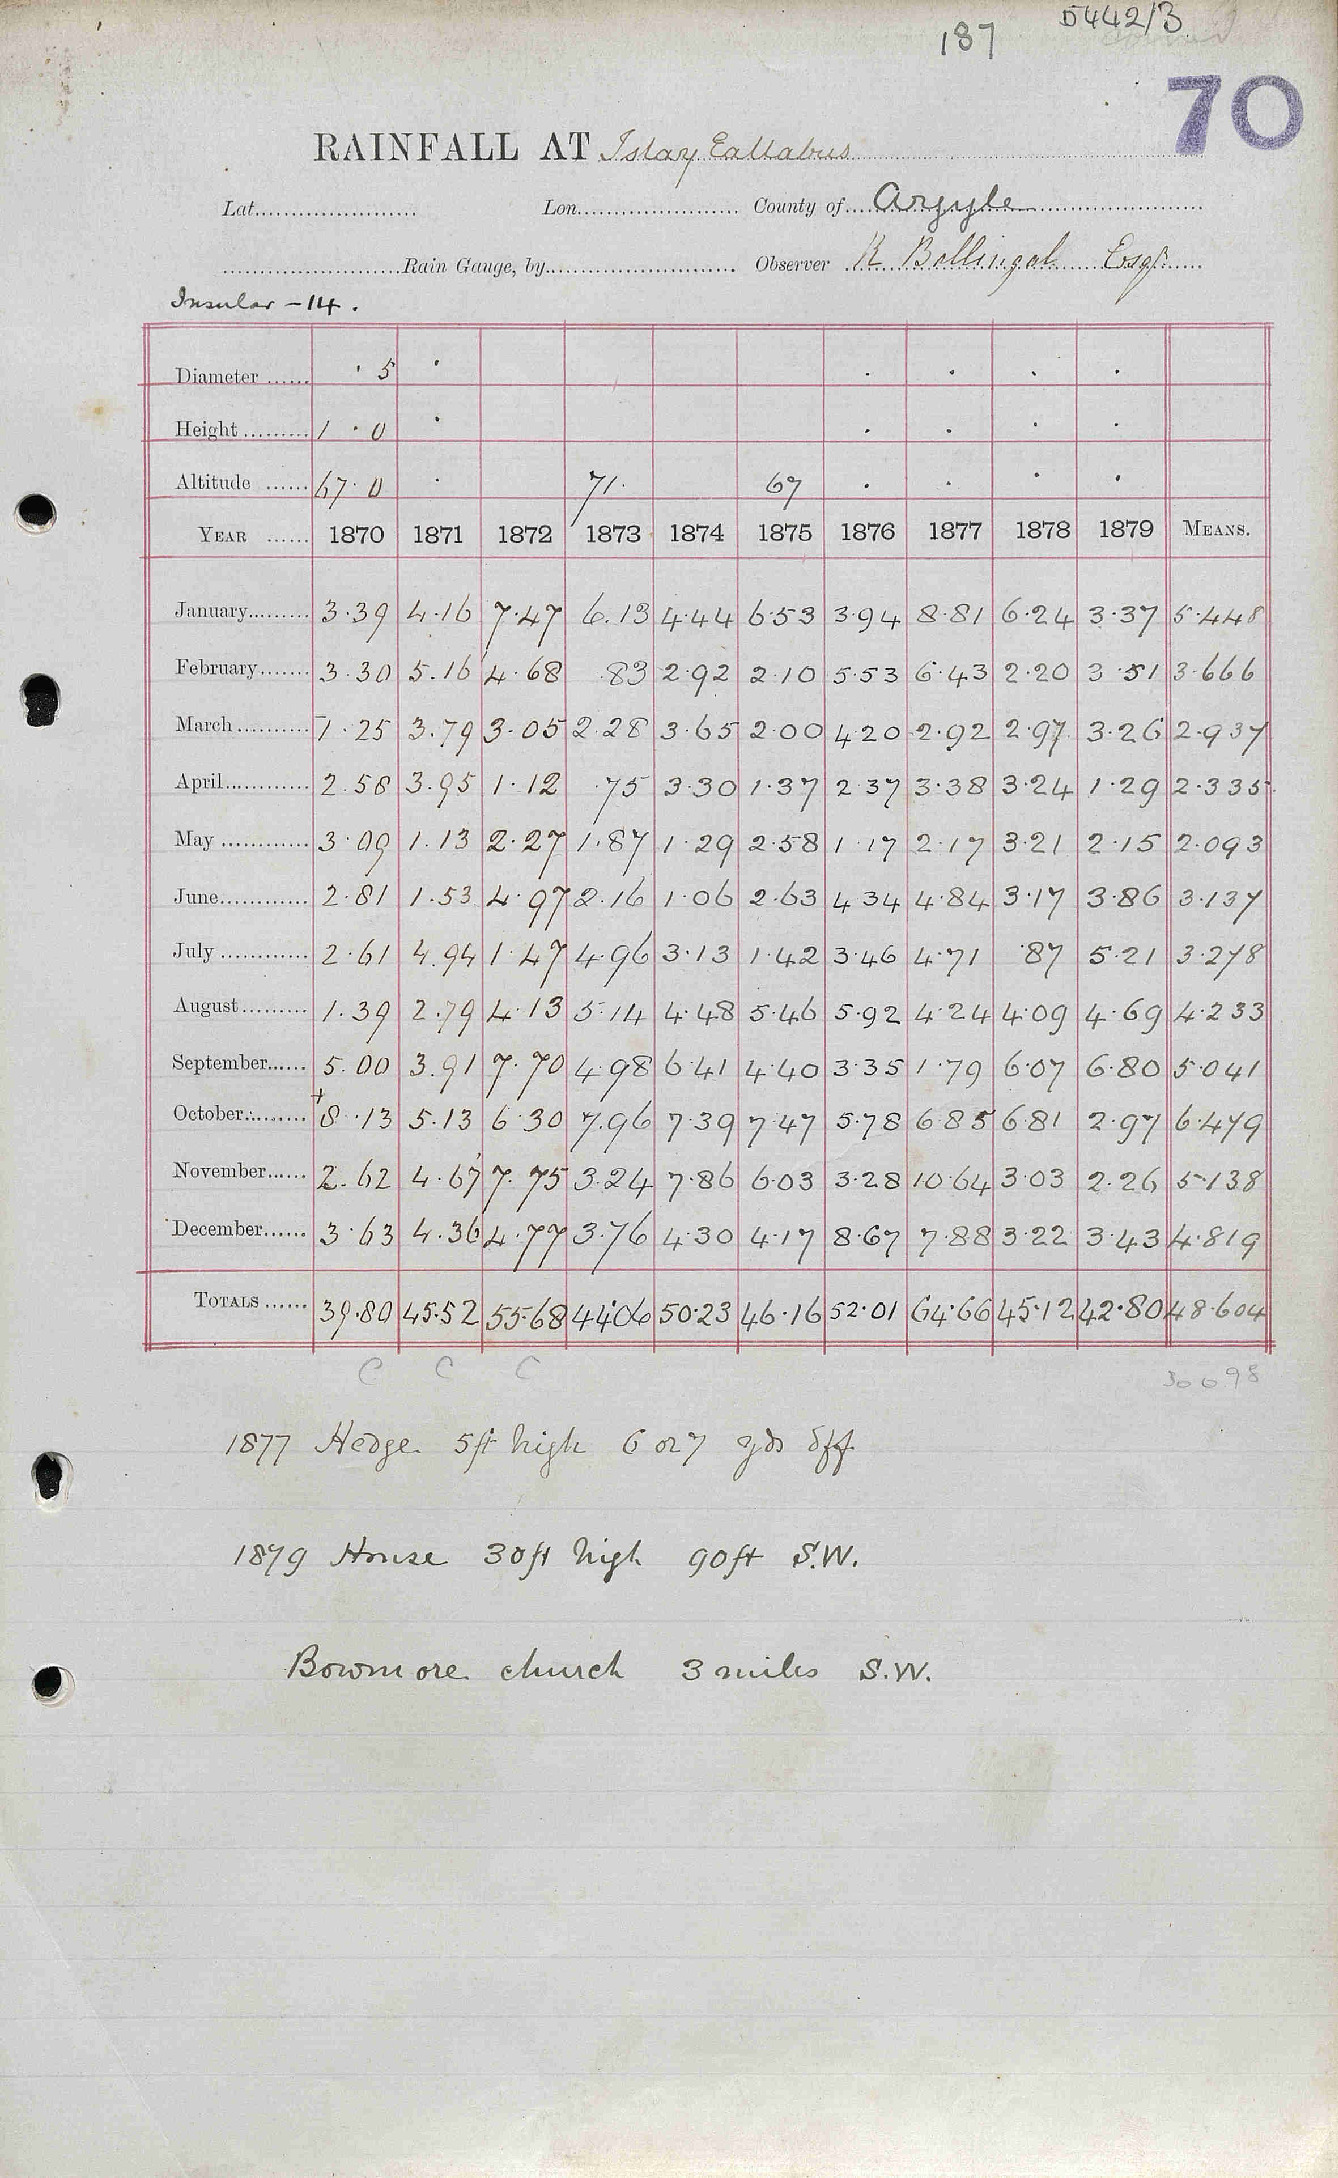 5442/3
187
70
RAINFALL AT Islay Eallabus
Lat. Lon. County of Argyle
Rain Gauge, by Observer R Ballingal Esqr.
Insular - 14.
Diameter · 5 · · · · ·
Height 1 · 0 · · · · ·
Altitude 67 · 0 · 71 · 67 · · · ·
YEAR 1870 1871 1872 1873 1874 1875 1876 1877 1878 1879 MEANS.
January 3·39 4·16 7·47 6·13 4·44 6·53 3·94 8·81 6·24 3·37 5·448
February 3·30 5·16 4·68 ·83 2·92 2·10 5·53 6·43 2·20 3·51 3·666
March 1·25 3·79 3·05 2·28 3·65 2·00 4·20 2·92 2·97 3·26 2·937
April 2·58 3·95 1·12 ·75 3·30 1·37 2·37 3·38 3·24 1·29 2·335
May 3·09 1·13 2·27 1·87 1·29 2·58 1·17 2·17 3·21 2·15 2·093
June 2·81 1·53 4·97 2·16 1·06 2·63 4·34 4·84 3·17 3·86 3·137
July 2·61 4·94 1·47 4·96 3·13 1·42 3·46 4·71 ·87 5·21 3·278
August 1·39 2·79 4·13 5·14 4·48 5·46 5·92 4·24 4·09 4·69 4·233
September 5·00 3·91 7·70 4·98 6·41 4·40 3·35 1·79 6·07 6·80 5·041
October +8·13 5·13 6·30 7·96 7·39 7·47 5·78 6·85 6·81 2·97 6·479
November 2·62 4·67 7·75 3·24 7·86 6·03 3·28 10·64 3·03 2·26 5·138
December 3·63 4·36 4·77 3·76 4·30 4·17 8·67 7·88 3·22 3·43 4·819
TOTALS 39·80 45·52 55·68 44·06 50·23 46·16 52·01 64·66 45·12 42·80 48·604
C C C
1877 Hedge 5ft high 6 or 7 yds off
1879 House 30ft high 90ft S.W.
Bowmore church 3 miles S.W.